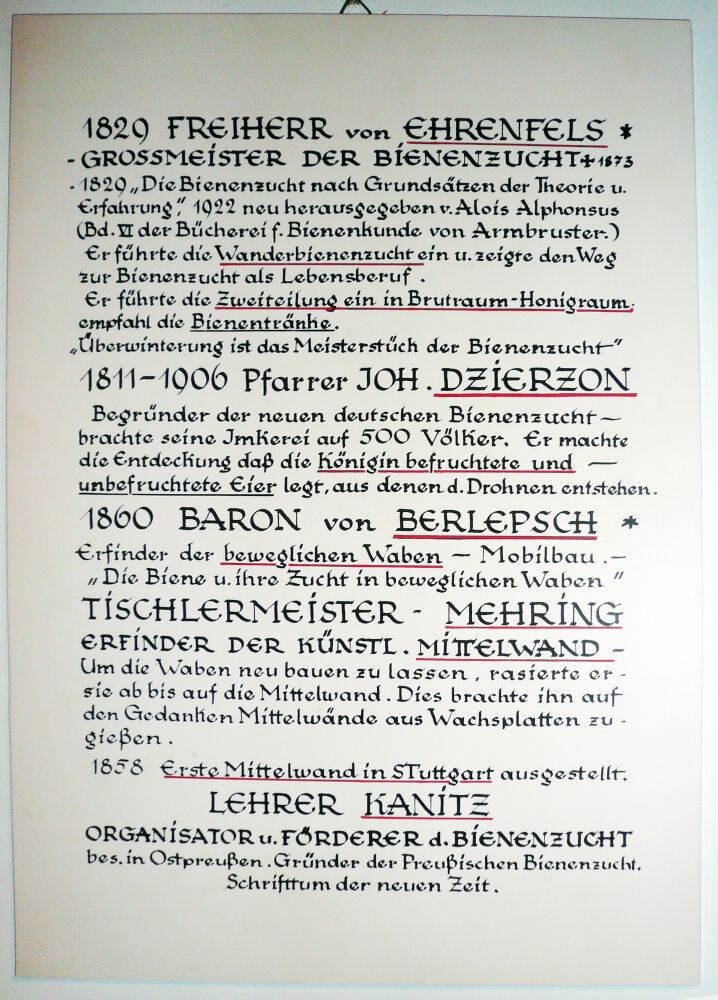 1829 FREIHERR von EHRENFELS *
- GROSSMEISTER DER BIENENZUCHT + 1873
- 1829 „Die Bienenzucht nach Grundsätzen der Theorie u.
Erfahrung", 1922 neu herausgegeben v. Alois Alphonsus
(Bd. VI der Bücherei f. Bienenkunde von Armbruster.)
Er führte die Wanderbienenzucht ein u. zeigte den Weg
zur Bienenzucht als Lebensberuf .
Er führte die Zweiteilung ein in Brutraum-Honigraum,
empfahl die Bienentränke .
„Überwinterung ist das Meisterstück der Bienenzucht"
1811-1906 Pfarrer JOH. DZIERZON
Begründer der neuen deutschen Bienenzucht —
brachte seine Imkerei auf 500 Völker. Er machte
die Entdeckung daß die Königin befruchtete und —
unbefruchtete Eier legt, aus denen d. Drohnen entstehen.
1860 BARON von BERLEPSCH *
Erfinder der beweglichen Waben — Mobilbau . —
„Die Biene u. ihre Zucht in beweglichen Waben "
TISCHLERMEISTER - MEHRING
ERFINDER DER KÜNSTL. MITTELWAND -
Um die Waben neu bauen zu lassen , rasierte er -
sie ab bis auf die Mittelwand . Dies brachte ihn auf
den Gedanken Mittelwände aus Wachsplatten zu -
gießen .
1858 Erste Mittelwand in STuttgart ausgestellt.
LEHRER KANITZ
ORGANISATOR u. FÖRDERER d. BIENENZUCHT
bes. in Ostpreußen . Gründer der Preußischen Bienenzucht.
Schrifttum der neuen Zeit .